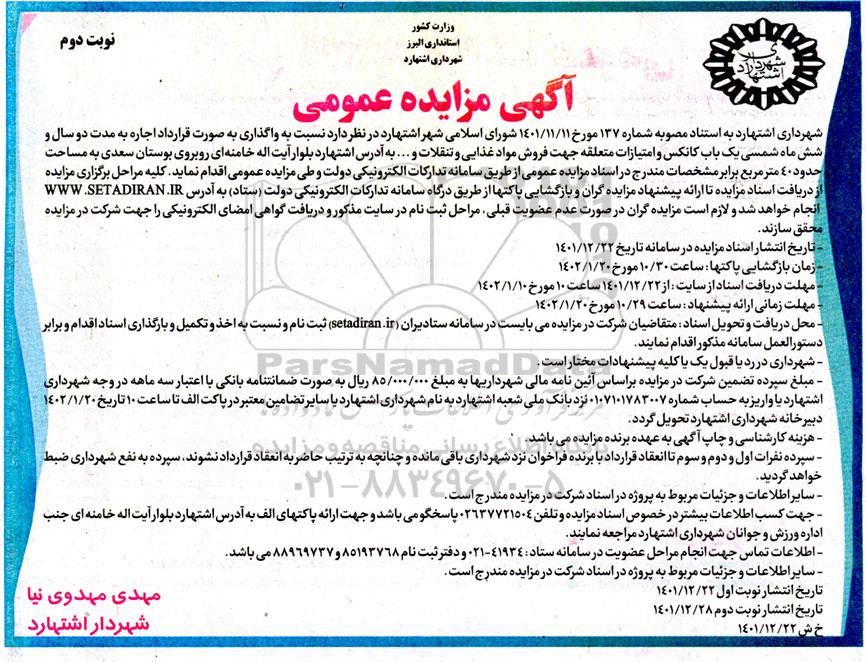 وزارت کشور
استانداری البرز
شهرداری اشتهارد
نوبت دوم
شهرداری
اشتهارد
آگهی مزایده عمومی
شهرداری اشتهارد به استناد مصوبه شماره ۱۳۷ مورخ ۱۴۰۱/۱۱/۱۱ شورای اسلامی شهر اشتهارد در نظر دارد نسبت به واگذاری به صورت قرارداد اجاره به مدت دو سال و
شش ماه شمسی یک باب کانکس و امتیازات متعلقه جهت فروش مواد غذایی و تنقلات و ... به آدرس اشتهارد بلوار آیت اله خامنه ای روبروی بوستان سعدی به مساحت
حدود ۴۰ متر مربع برابر مشخصات مندرج در اسناد مزایده عمومی از طریق سامانه تدارکات الکترونیکی دولت و طی مزایده عمومی اقدام نماید. کلیه مراحل برگزاری مزایده
از دریافت اسناد مزایده تا ارائه پیشنهاد مزایده گران و بازگشایی پاکتها از طریق درگاه سامانه تدارکات الکترونیکی دولت (ستاد) به آدرس WWW.SETADIRAN.IR
انجام خواهد شد و لازم است مزایده گران در صورت عدم عضویت قبلی، مراحل ثبت نام در سایت مذکور و دریافت گواهی امضای الکترونیکی را جهت شرکت در مزایده
محقق سازند.
- تاریخ انتشار اسناد مزایده در سامانه تاریخ ۱۴۰۱/۱۲/۲۲
- زمان بازگشایی پاکتها: ساعت ۱۰/۳۰ مورخ ۱۴۰۲/۱/۲۰
- مهلت دریافت اسناد از سایت: از ۱۴۰۱/۱۲/۲۲ ساعت ۱۰ مورخ ۱۴۰۲/۱/۱۰
- مهلت زمانی ارائه پیشنهاد: ساعت ۱۰/۲۹ مورخ ۱۴۰۲/۱/۲۰
- محل دریافت و تحویل اسناد: متقاضیان شرکت در مزایده می بایست در سامانه ستادیران (setadiran.ir) ثبت نام و نسبت به اخذ و تکمیل و بارگذاری اسناد اقدام و برابر
دستورالعمل سامانه مذکور اقدام نمایند.
- شهرداری در رد یا قبول یک یا کلیه پیشنهادات مختار است.
ParsNamadData
- مبلغ سپرده تضمین شرکت در مزایده براساس آئین نامه مالی شهرداریها به مبلغ ۸۵/۰۰۰/۰۰۰ ریال به صورت ضمانتنامه بانکی با اعتبار سه ماهه در وجه شهرداری
اشتهارد یا واریز به حساب شماره ۰۱۰۷۱۰۱۷۸۳۰۰۷ نزد بانک ملی شعبه اشتهارد به نام شهرداری اشتهارد یا سایر تضامین معتبر در پاکت الف تا ساعت ۱۰ تاریخ ۱۴۰۲/۱/۲۰
دبیرخانه شهرداری اشتهارد تحویل گردد.
- هزینه کارشناسی و چاپ آگهی به عهده برنده مزایده می باشد.
- سپرده نفرات اول و دوم و سوم تا انعقاد قرارداد با برنده فراخوان نزد شهرداری باقی مانده و چنانچه به ترتیب حاضر به انعقاد قرارداد نشوند، سپرده به نفع شهرداری ضبط
خواهد گردید.
۰۲۱-۸۸۳۴۹۶۷۰-۵
- سایر اطلاعات و جزئیات مربوط به پروژه در اسناد شرکت در مزایده مندرج است.
- جهت کسب اطلاعات بیشتر در خصوص اسناد مزایده و تلفن ۰۲۶۳۷۷۲۱۵۰۴ پاسخگو می باشد و جهت ارائه پاکتهای الف به آدرس اشتهارد بلوار آیت اله خامنه ای جنب
اداره ورزش و جوانان شهرداری اشتهارد مراجعه نمایند.
- اطلاعات تماس جهت انجام مراحل عضویت در سامانه ستاد: ۴۱۹۳۴-۰۲۱ و دفتر ثبت نام ۸۵۱۹۳۷۶۸ و ۸۸۹۶۹۷۳۷ می باشد.
- سایر اطلاعات و جزئیات مربوط به پروژه در اسناد شرکت در مزایده مندرج است.
تاریخ انتشار نوبت اول ۱۴۰۱/۱۲/۲۲
تاریخ انتشار نوبت دوم ۱۴۰۱/۱۲/۲۸
خ ش ۱۴۰۱/۱۲/۲۲
مهدی مهدوی نیا
شهردار اشتهارد